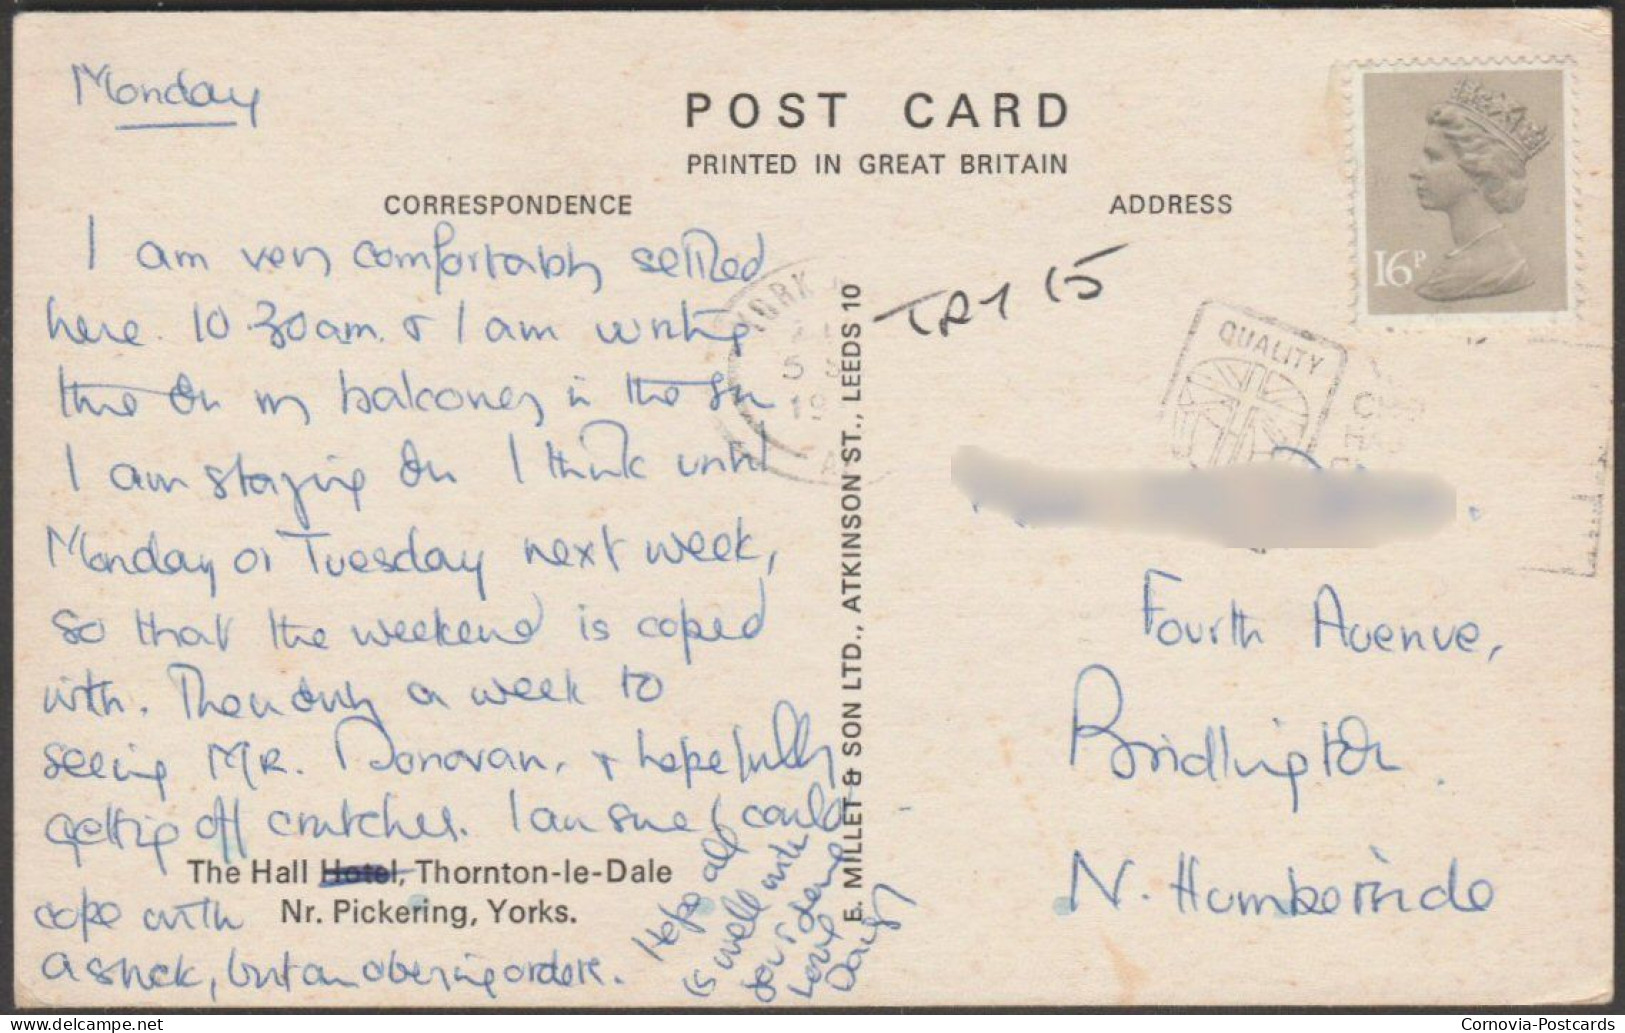 Monday
POST CARD
PRINTED IN GREAT BRITAIN
CORRESPONDENCE
ADDRESS
I am very comfortably settled
here. 10.30am. & I am writing
this on my balcony in the sun
I am staying on I think until
Monday or Tuesday next week,
so that the weekend is coped
with. Then only a week to
seeing MR. Donovan, & hopefully
getting off crutches. I am sure I could
The Hall Hotel, Thornton-le-Dale
Nr. Pickering, Yorks.
cope with
a stick, but am obeying orders.
Hope all
is well with
you &
Love
E. MILLET & SON LTD., ATKINSON ST., LEEDS 10
TRY 15
16P
YORK
QUALITY
Fourth Avenue,
Bridlington.
N. Humberside
Cornovia-Postcards